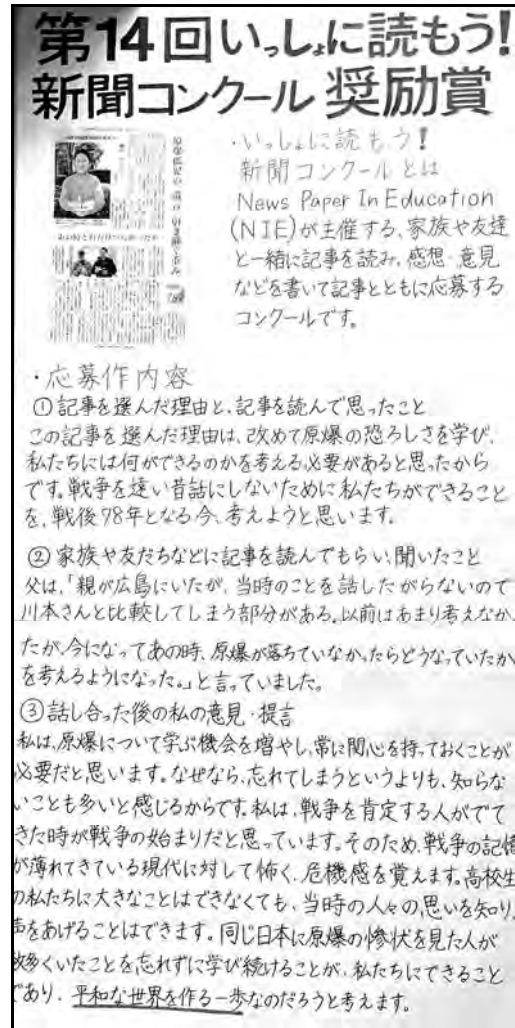 第14回いっしょに読もう!
新聞コンクール 奨励賞
・いっしょに読もう!
新聞コンクールとは
News Paper In Education
(NIE)が主催する、家族や友達
と一緒に記事を読み、感想・意見
などを書いて記事とともに応募する
コンクールです。
・応募作内容
①記事を選んだ理由と、記事を読んで思ったこと
この記事を選んだ理由は、改めて原爆の恐ろしさを学び、
私たちには何ができるのかを考える必要があると思ったから
です。戦争を遠い昔話にしないために私たちができること
を、戦後78年となる今、考えようと思います。
②家族や友だちなどに記事を読んでもらい、聞いたこと
父は、「親が広島にいたが、当時のことを話したがらないので
川本さんと比較してしまう部分がある。以前はあまり考えなかっ
たが、今になってあの時、原爆が落ちていなかったらどうなっていたか
を考えるようになった。」と言っていました。
③話し合った後の私の意見・提言
私は、原爆について学ぶ機会を増やし、常に関心を持っておくことが
必要だと思います。なぜなら、忘れてしまうというよりも、知らな
いことも多いと感じるからです。私は、戦争を肯定する人がでて
きた時が戦争の始まりだと思っています。そのため、戦争の記憶
が薄れてきている現代に対して怖く、危機感を覚えます。高校生
の私たちに大きなことはできなくても、当時の人々の思いを知り、
声をあげることはできます。同じ日本に原爆の惨状を見た人が
数多くいたことを忘れずに学び続けることが、私たちにできること
であり、平和な世界を作る一歩なのだろうと考えます。